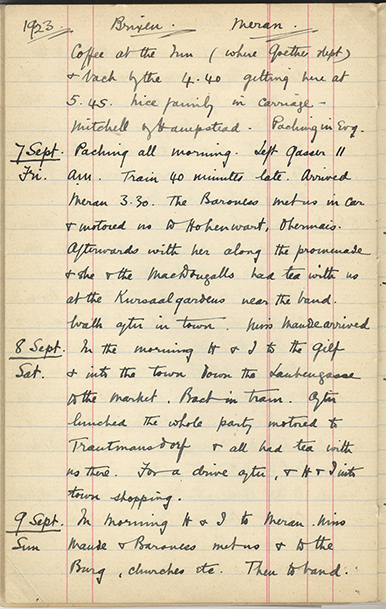 1923. Brixen. Meran.
Coffee at the Inn (where Goethe slept)
& back by the 4.40 getting here at
5.45. Nice family in carriage -
Mitchell of Hampstead. Packing in Evg.
7 Sept. Packing all morning. Left Gasser 11
Fri. A.M. Train 40 minutes late. Arrived
Meran 3.30. The Baroness met us in car
& motored us to Hohenwart, Obermais.
Afterwards with her along the promenade
& she & the MacDougalls had tea with us
at the Kursaal gardens near the band.
Walk after in town. Miss Maude arrived
8 Sept. In the morning H & I to the Gilf
Sat. & into the town down the Laubengasse
to the market. Back in tram. After
lunched the whole party motored to
Trautmansdorf & all had tea with
us there. For a drive after, & H & I into
town shopping.
9 Sept. In morning H & I to Meran. Miss
Sun Maude & Baroness met us & to the
Burg, churches etc. Then to band.